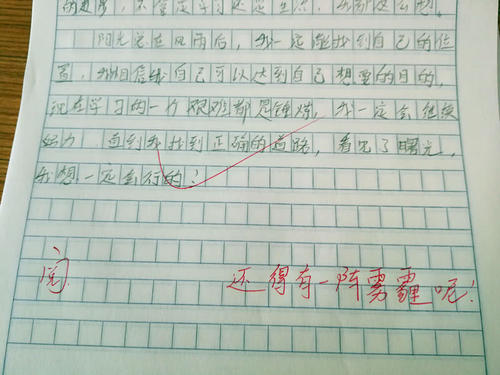 的是，不管是学习还是生活，
阳光总在风雨后，我一定能找到自己的位
置，我相信我自己可以达到自己想要的目的，
现在学习的一切艰难都是锤炼，我一定会继续
努力，直到我找到正确的道路，看见了曙光，
我想一定会行的！
阅
还得有一阵雾霾呢！